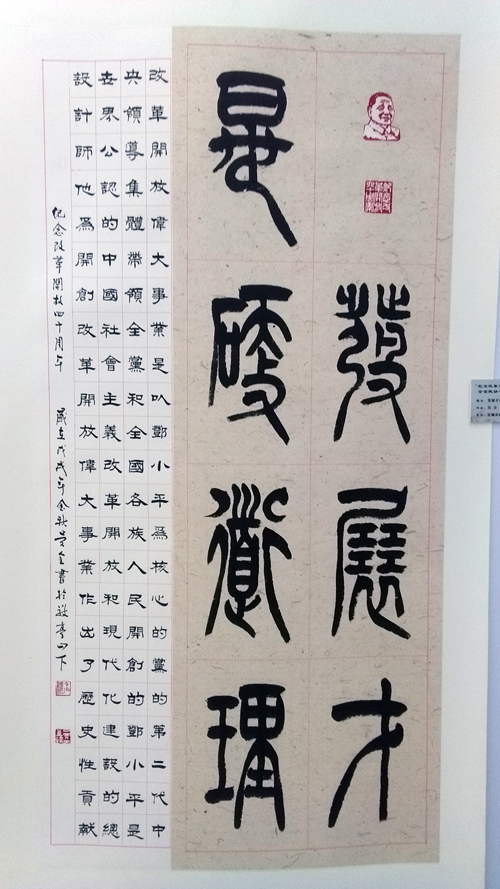 發展才
是硬道理
改革開放偉大事業是以鄧小平爲核心的黨的第二代中
央領導集體帶領全黨和全國各族人民開創的鄧小平是
世界公認的中國社會主義改革開放和現代化建設的總
設計師他爲開創改革開放偉大事業作出了歷史性貢獻
纪念改革開放四十周年 歲在戊戌年金秋